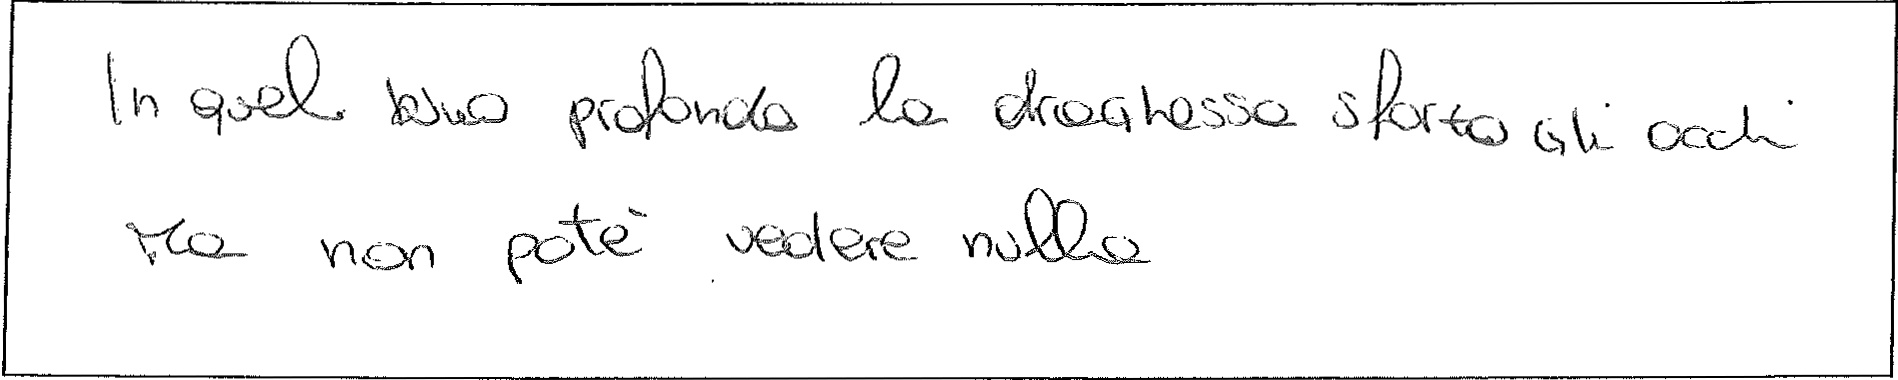 In quel buio profondo la draghessa sforzo gli occhi
Ma non potè vedere nulla